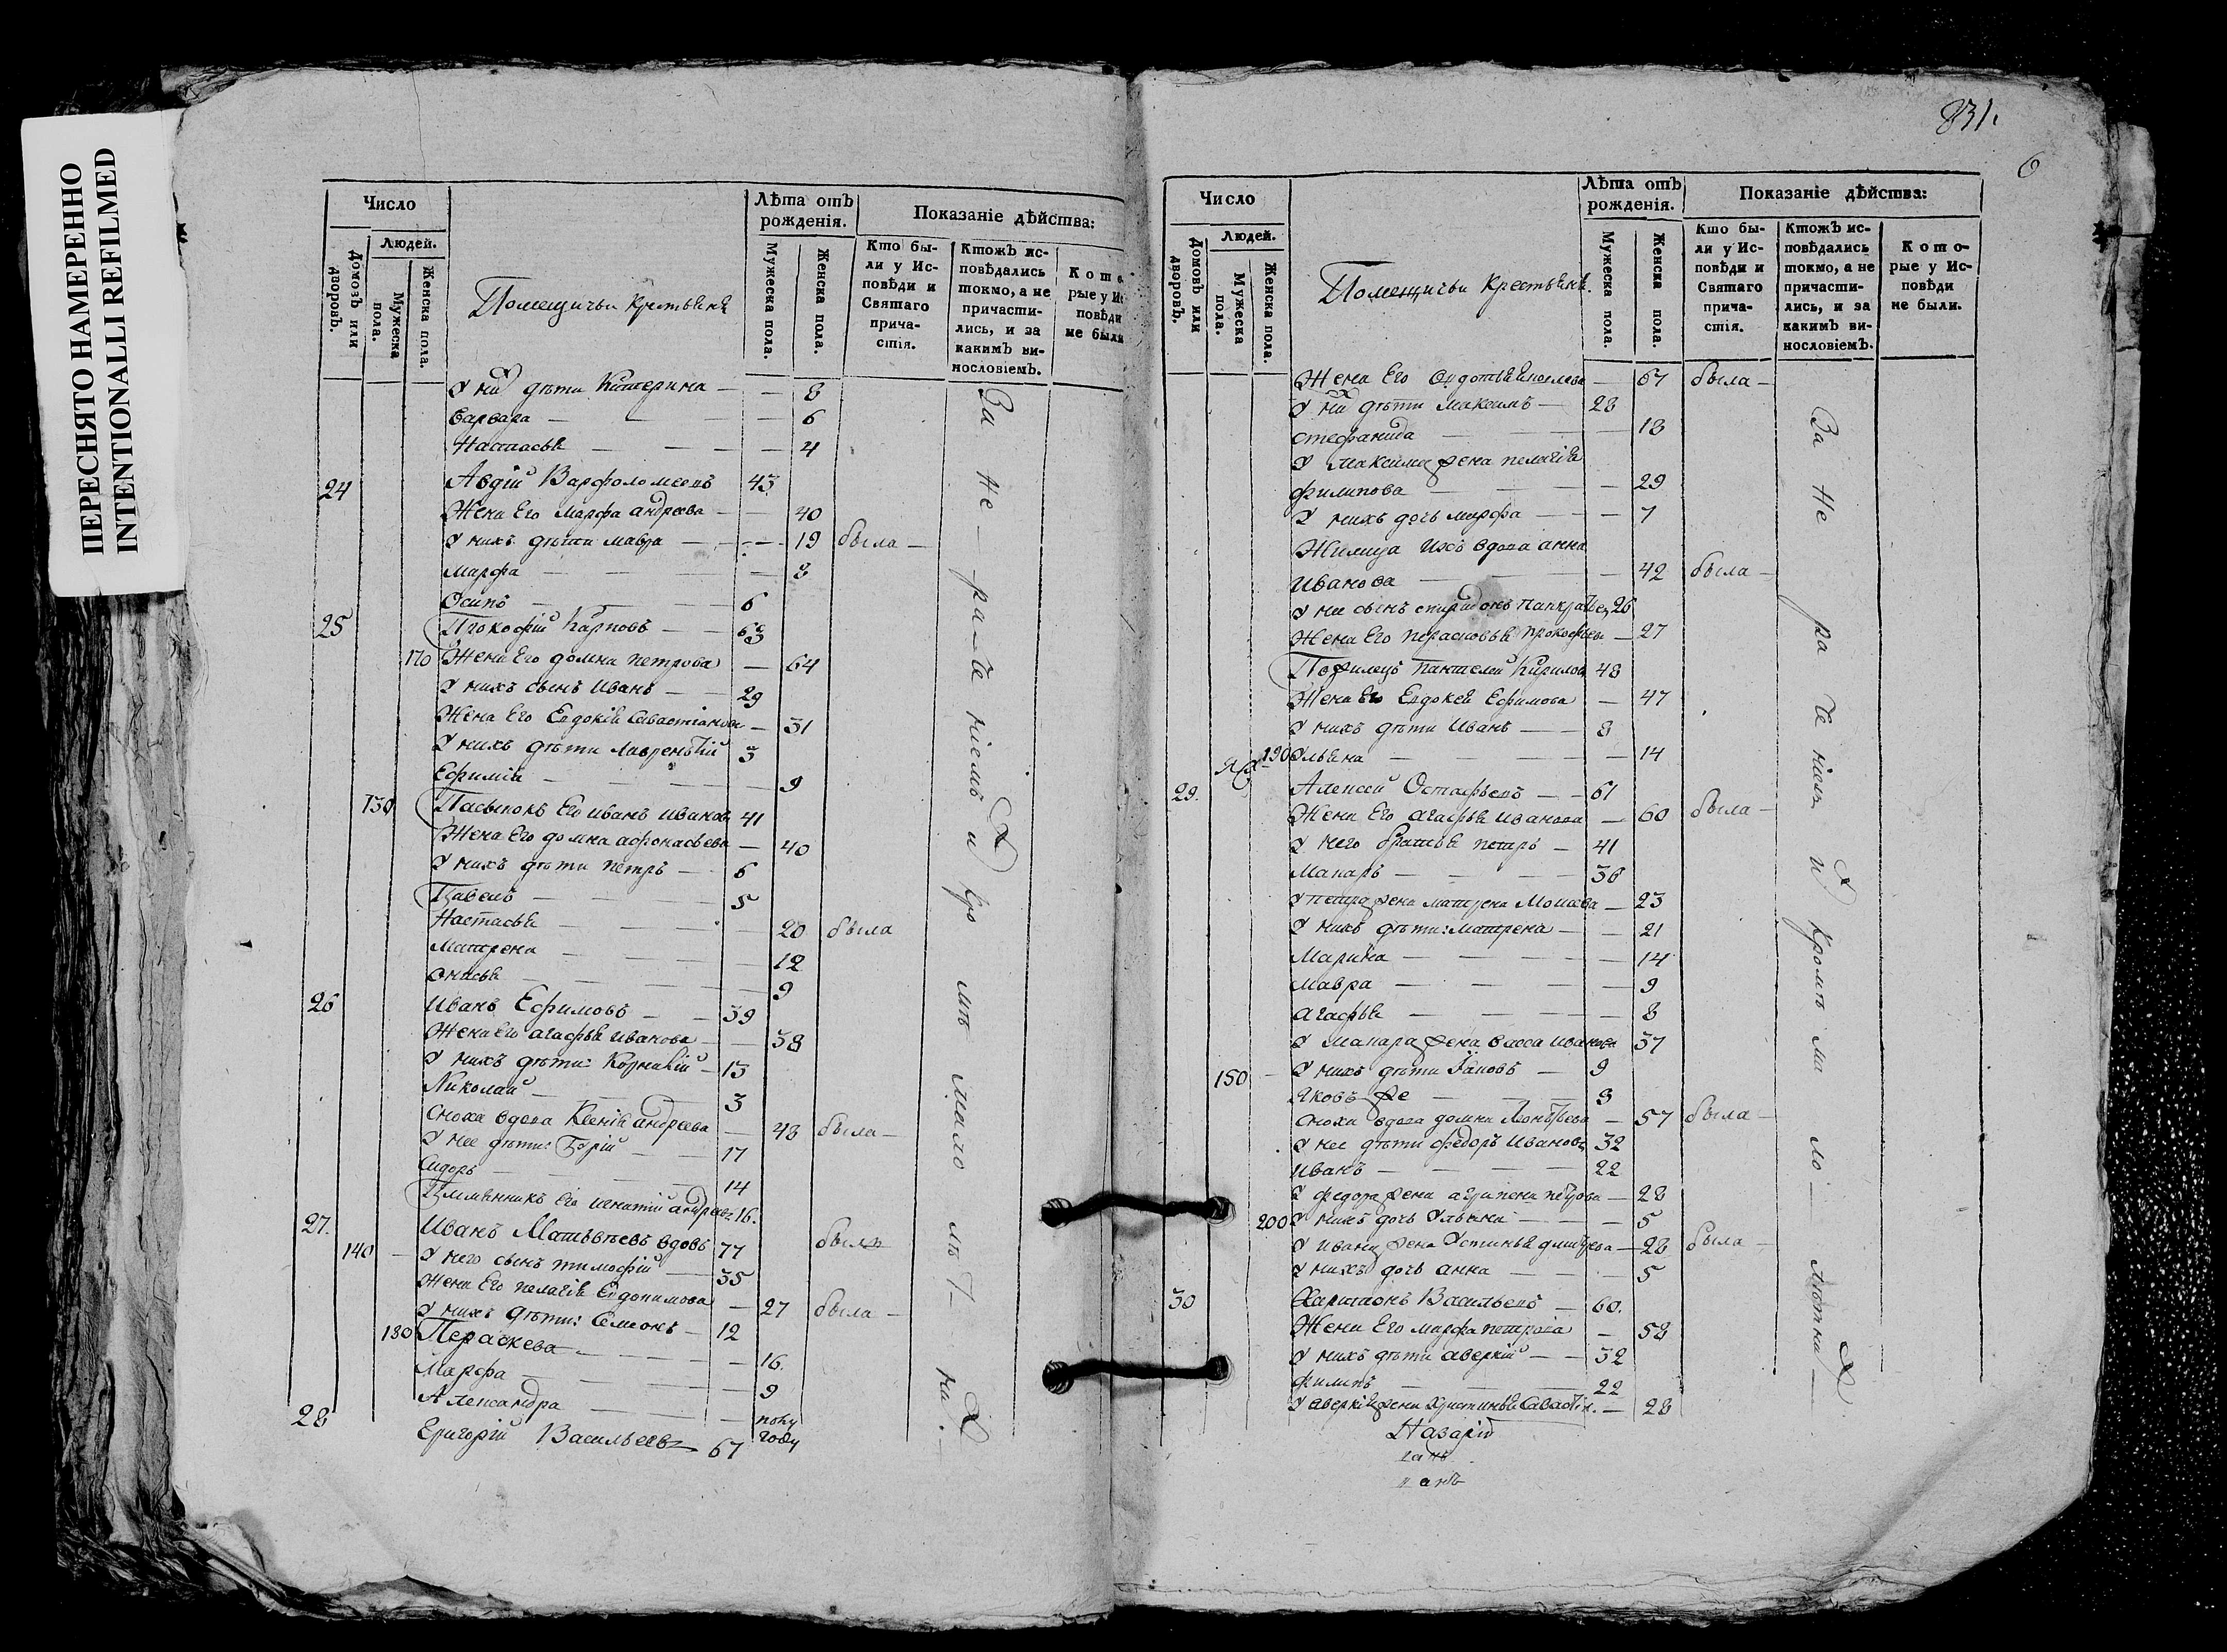 ПЕРЕСНЯТО НАМЕРЕННО
INTENTIONALLI REFILMED
Число
Людей.
Домовъ или дворовъ.
Мужеска пола.
Женска пола.
Помещичьи крестьяня
Лѣта отъ рожденія.
Мужеска пола.
Женска пола.
Показаніе дѣйства:
Кто бы-
ли у Ис-
повѣди и
Святаго
прича-
стія.
Ктожъ ис-
повѣдались
токмо, а не
причасти-
лись, и за
какимъ ви-
нословіемъ.
Кото
рые у Ис
повѣди
не были
У них дѣти Катерина — 8
Варвара — 6
Настасья — 4
24 Авдій Варфоломеевъ 43
Жена Его Марфа андреева — 40
У нихъ дѣти мавра — 19 была —
Марфа — 8
Осипъ — 6
25 Прокофій Карповъ — 63
170 Жена Его домна петрова — 64
У нихъ сынъ Иванъ — 29
Жена Его Евдокія Савастіанова — 31
У нихъ дѣти Лаврентій 3
Ефимія — 9
130 Пасынокъ Его иванъ иванов 41
Жена Его домна афонасьева — 40
У нихъ дѣти петръ — 6
Павелъ — 5
Настасья — 20 была
Матрена — 12
Анисья — 9
26 Иванъ Ефимовъ — 39
Жена Его агафья иванова — 38
У нихъ дѣти: Корнилій — 13
Николай — 3
Сноха вдова Ксенія андреева — 48 была —
У нее дѣти: Гурій — 17
Сидоръ — 14
Племянникъ Его игнатій андреевъ 16.
27. Иванъ Матвѣевъ вдовъ 77 былъ
140 — У него сынъ тимофій — 35
Жена Его пелагія Евдокимова — 27 была —
У нихъ дѣти: Семионъ — 12
180 Пераскева — 16.
Марфа — 9
Александра — полу году
28 Григорій Васильевъ 67
За не-ра-че ніемъ и кро мѣ мало лѣт ни
831.
6
Число
Людей.
Домовъ или дворовъ.
Мужеска пола.
Женска пола.
Помещичьи крестьяня.
Лѣта отъ рожденія.
Мужеска пола.
Женска пола.
Показаніе дѣйства:
Кто бы-
ли у Ис-
повѣди и
Святаго
прича-
стія.
Ктожъ ис-
повѣдались
токмо, а не
причасти-
лись, и за
какимъ ви-
нословіемъ.
Кото-
рые у Ис-
повѣди
не были.
Жена Его — 67 была —
У них дѣти Максимъ — 28
стефанида — 18
У Максима жена пелагія
филипова — 29
У нихъ дочь марфа — 7
Жилица ихъ вдова анна
Иванова — 42 была —
У нее сынъ спиридонъ панкратьев 26
Жена Его парасковья прокофьева — 27
Пожилецъ пантелей Кирилов 48
Жена Его Евдокея Ефимова — 47
У нихъ дѣти Иванъ — 8
190 Ульяна — 14
29. Алексей Остафьевъ — 61
Жена Его агафья иванова — 60 была —
У него братья петръ — 41
Макаръ — 36
У петра жена матрена Моисева — 23
У нихъ дѣти: Матрена — 21
Марина — 14
Мавра — 9
агафья — 8
У Макара жена васса иванова 37
150 — У нихъ дѣти Іаковъ — 9
Яковъ же — 3
сноха вдова домна Леонтьева — 57 была —
У нее дѣти федоръ Ивановъ 32
Иванъ — 22
У федора жена агрипена петрова — 28
200 У нихъ дочь Ульяна — 5
У ивана жена Устинья дмитрева — 28 была —
У нихъ дочь анна — 5
30 Харитонъ Васильевъ — 60.
Жена Его марфа петрова — 58
У нихъ дѣти аверкій — 32
филипъ — 22
У аверкія жена Христинья Савастія. — 28
За не ра че ніемъ и кромѣ ма ло — лѣтни —
Назарій